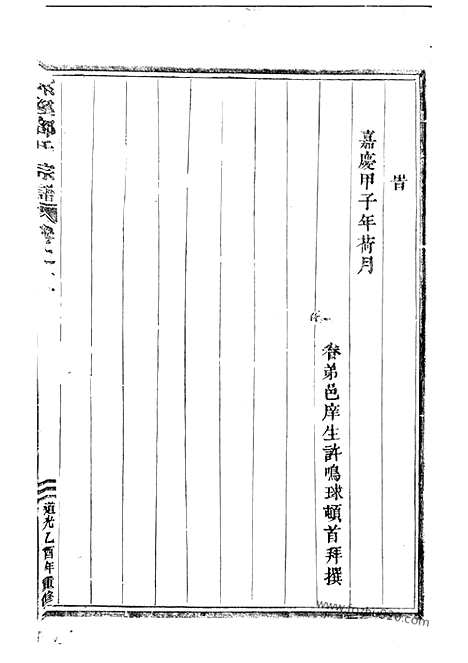 旹
嘉慶甲子年荷月
眷弟邑庠生許鳴球頓首拜撰
宗譜
卷二
道光乙酉年重修